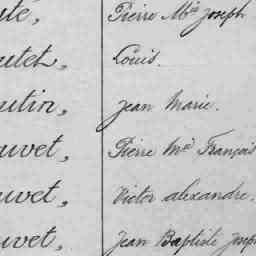 Pierre Mie Joseph
utet, Louis.
utin, Jean Marie.
uvet, Pierre Me François
uvet, Victor alexandre.
uvet, Jean Baptiste